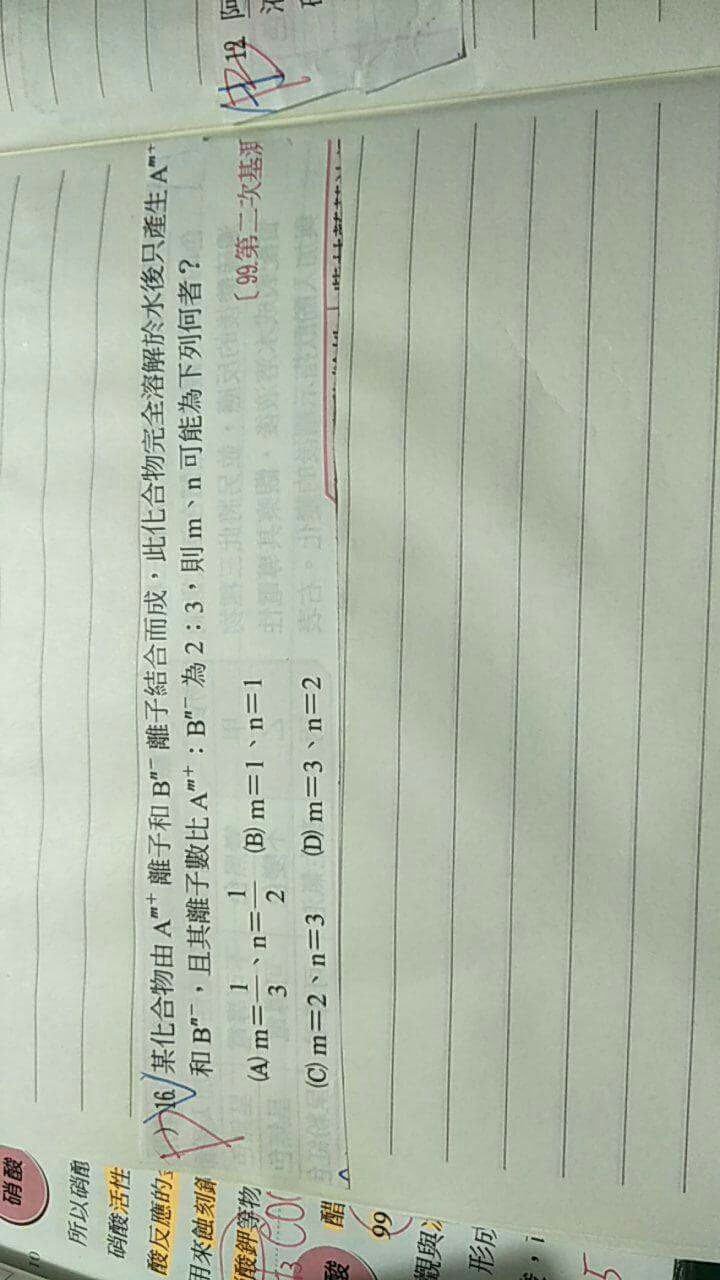 16. 某化合物由 Aᵐ⁺ 離子和 Bⁿ⁻ 離子結合而成，此化合物完全溶解於水後只產生 Aᵐ⁺
和 Bⁿ⁻，且其離子數比 Aᵐ⁺：Bⁿ⁻ 為 2：3，則 m、n 可能為下列何者？
〔99.第二次基測
(A) m=1/3、n=1/2 (B) m=1、n=1
(C) m=2、n=3 (D) m=3、n=2
12.
硝酸
10
所以硝酸
硝酸活性
酸反應的
用來蝕刻銅
酸鉀等物
醋
酸
99
觀與
形成
5